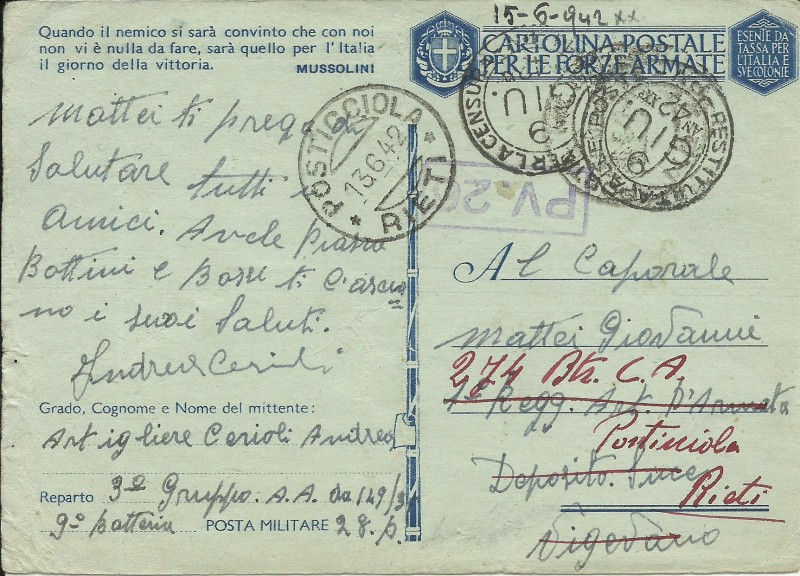 15-6-942 xx
Quando il nemico si sarà convinto che con noi
non vi è nulla da fare, sarà quello per l'Italia
il giorno della vittoria.
MUSSOLINI
CARTOLINA POSTALE
PER LE FORZE ARMATE
ESENTE DA
TASSA PER
L'ITALIA E
SUE COLONIE
POSTICCIOLA
13.6.42
* RIETI *
9 GIU.
9 GIU. 42
PV. 20
Mattei ti prego di
Salutare tutti i
Amici. Anche
Bottini e Bossi ti
no i suoi Saluti.
Andrea Cerioli
Grado, Cognome e Nome del mittente:
Artigliere Cerioli Andrea
Reparto 3º Gruppo. A.A. da 149/
9º Batteria POSTA MILITARE 28. p.
Al Caporale
Mattei Giovanni
274 Btr. C. A.
1º Regg. Art. D'Armata
Posticciola
Deposito. Succ
Rieti
Vigevano